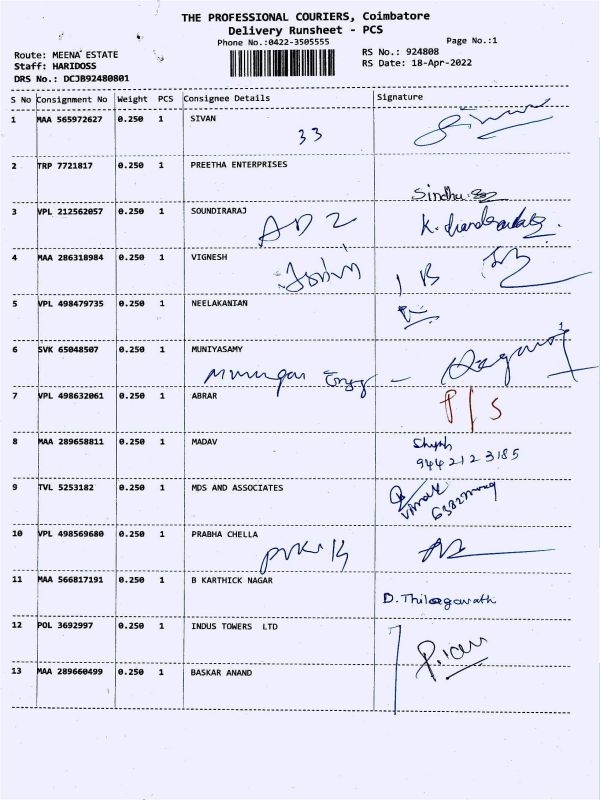 THE PROFESSIONAL COURIERS, Coimbatore
Delivery Runsheet - PCS
Phone No.:0422-3505555
Page No.:1
Route: MEENA ESTATE
Staff: HARIDOSS
DRS No.: DCJB92480801
RS No.: 924808
RS Date: 18-Apr-2022
S No Consignment No Weight PCS Consignee Details Signature
1 MAA 565972627 0.250 1 SIVAN
33
2 TRP 7721817 0.250 1 PREETHA ENTERPRISES
Sindhu
3 VPL 212562057 0.250 1 SOUNDIRARAJ
4 MAA 286318984 0.250 1 VIGNESH
5 VPL 498479735 0.250 1 NEELAKANTAN
6 SVK 65048507 0.250 1 MUNIYASAMY
7 VPL 498632061 0.250 1 ABRAR
P/S
8 MAA 289658811 0.250 1 MADAV
9442123185
9 TVL 5253182 0.250 1 MDS AND ASSOCIATES
10 VPL 498569680 0.250 1 PRABHA CHELLA
11 MAA 566817191 0.250 1 B KARTHICK NAGAR
D. Thilagavathi
12 POL 3692997 0.250 1 INDUS TOWERS LTD
13 MAA 289660499 0.250 1 BASKAR ANAND